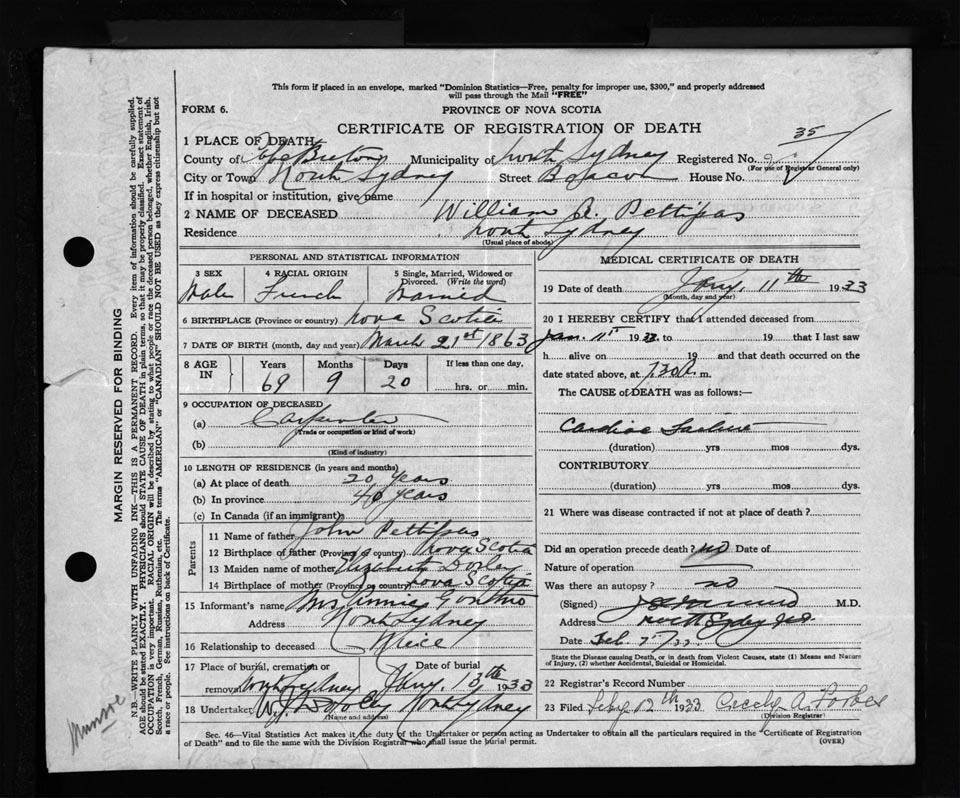 This form if placed in an envelope, marked "Dominion Statistics—Free, penalty for improper use, $300," and properly addressed
will pass through the Mail "FREE"
FORM 6.
PROVINCE OF NOVA SCOTIA
CERTIFICATE OF REGISTRATION OF DEATH
35
1 PLACE OF DEATH
County of Cape Breton Municipality of North Sydney Registered No.
(For use of Registrar General only)
City or Town North Sydney Street Beacon House No.
If in hospital or institution, give name
2 NAME OF DECEASED William A. Pettipas
Residence North Sydney
(Usual place of abode)
PERSONAL AND STATISTICAL INFORMATION
3 SEX 4 RACIAL ORIGIN 5 Single, Married, Widowed or Divorced. (Write the word)
Male French Married
6 BIRTHPLACE (Province or country) Nova Scotia
7 DATE OF BIRTH (month, day and year) March 21st 1863
8 AGE IN Years Months Days If less than one day,
69 9 20 hrs. or min.
9 OCCUPATION OF DECEASED
(a) Carpenter
(Trade or occupation or kind of work)
(b)
(Kind of industry)
10 LENGTH OF RESIDENCE (in years and months)
(a) At place of death 20 years
(b) In province 40 years
(c) In Canada (if an immigrant)
Parents
11 Name of father John Pettipas
12 Birthplace of father (Province or country) Nova Scotia
13 Maiden name of mother Elizabeth
14 Birthplace of mother (Province or country) Nova Scotia
15 Informant's name Mrs Annie
Address North Sydney
16 Relationship to deceased Niece
17 Place of burial, cremation or removal North Sydney Date of burial Jany. 13th 1933
18 Undertaker W. J. Dooley North Sydney
(Name and address)
MEDICAL CERTIFICATE OF DEATH
19 Date of death Jany. 11th 1933
(Month, day and year)
20 I HEREBY CERTIFY that I attended deceased from
Jan. 11 1933, to 19 that I last saw
h alive on 19 and that death occurred on the
date stated above, at 7.30 A. m.
The CAUSE OF DEATH was as follows:—
Cardiac Failure
(duration) yrs mos dys.
CONTRIBUTORY
(duration) yrs mos dys.
21 Where was disease contracted if not at place of death?
Did an operation precede death? no Date of
Nature of operation
Was there an autopsy? no
(Signed) M.D.
Address North Sydney N.S.
Date Feb. 33
State the Disease causing Death, or in death from Violent Causes, state (1) Means and Nature
of Injury, (2) whether Accidental, Suicidal or Homicidal.
22 Registrar's Record Number
23 Filed Feby 12th 1933 Cecily A. Forbes
(Division Registrar)
Sec. 46—Vital Statistics Act makes it the duty of the Undertaker or person acting as Undertaker to obtain all the particulars required in the "Certificate of Registration
of Death" and to file the same with the Division Registrar who shall issue the burial permit.
(OVER)
MARGIN RESERVED FOR BINDING
N.B.—WRITE PLAINLY WITH UNFADING INK—THIS IS A PERMANENT RECORD. Every item of information should be carefully supplied.
AGE should be stated EXACTLY. PHYSICIANS should STATE CAUSE OF DEATH in plain terms, so that it may be properly classified. Exact statement of
OCCUPATION is very important. RACIAL ORIGIN will be described by stating to what people or race the deceased person belonged, whether English, Irish,
Scotch, French, German, Russian, Ruthenian, etc. The terms "AMERICAN" or "CANADIAN" SHOULD NOT BE USED as they express citizenship but not
a race or people. See instructions on back of Certificate.
Munroe